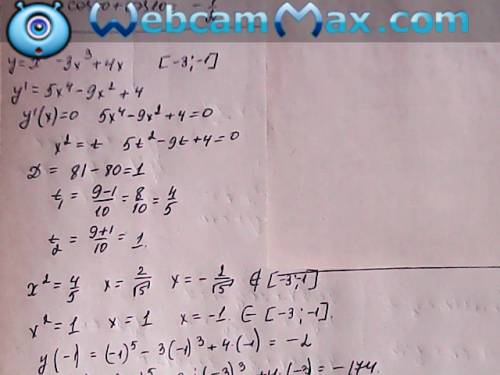 WebcamMax.com
y = x⁵ - 3x³ + 4x [-3; -1]
y' = 5x⁴ - 9x² + 4
y'(x) = 0 5x⁴ - 9x² + 4 = 0
x² = t 5t² - 9t + 4 = 0
D = 81 - 80 = 1
t₁ = (9-1)/10 = 8/10 = 4/5
t₂ = (9+1)/10 = 1.
x² = 4/5 x = 2/√5 x = -2/√5 ∉ [-3; -1]
x² = 1 x = 1 x = -1. ∈ [-3; -1].
y(-1) = (-1)⁵ - 3(-1)³ + 4·(-1) = -2
(-3)³ + 4·(-3) = -174.